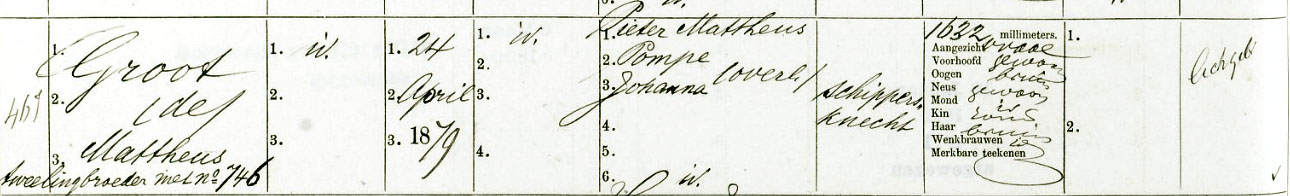 461
1. Groot
2. (de)
3. Mattheus
tweelingbroeder met nº 746
1. id.
2.
3.
1. 24
2. April
3. 1879
1. id.
2.
3.
4.
1. Pieter Mattheus
2. Pompe
3. Johanna (overl.)
4.
5.
6. id.
schippers,
knecht
1632 millimeters.
Aangezicht ovaal
Voorhoofd gewoon
Oogen bruin
Neus gewoon
Mond id
Kin rond
Haar bruin
Wenkbrauwen id
Merkbare teekenen
1.
2.